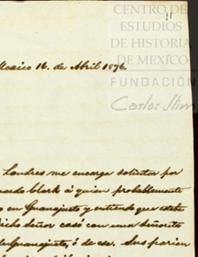 CENTRO DE
ESTUDIOS
DE HISTORIA
DE MEXICO
FUNDACIÓN
Carlos Slim
Mexico 16. de Abril 1896.
Londres me encarga solicitar por
Clark á quien probablemente
en Guanajuato y entiendo que este
dicho Señor casó con una Señorita
de Guanajuato, ó de ser. Sus parien